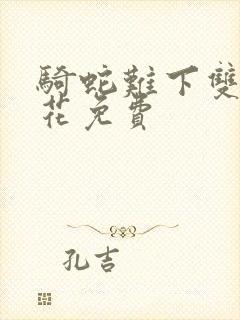 騎蛇難下雙
花免費
孔吉